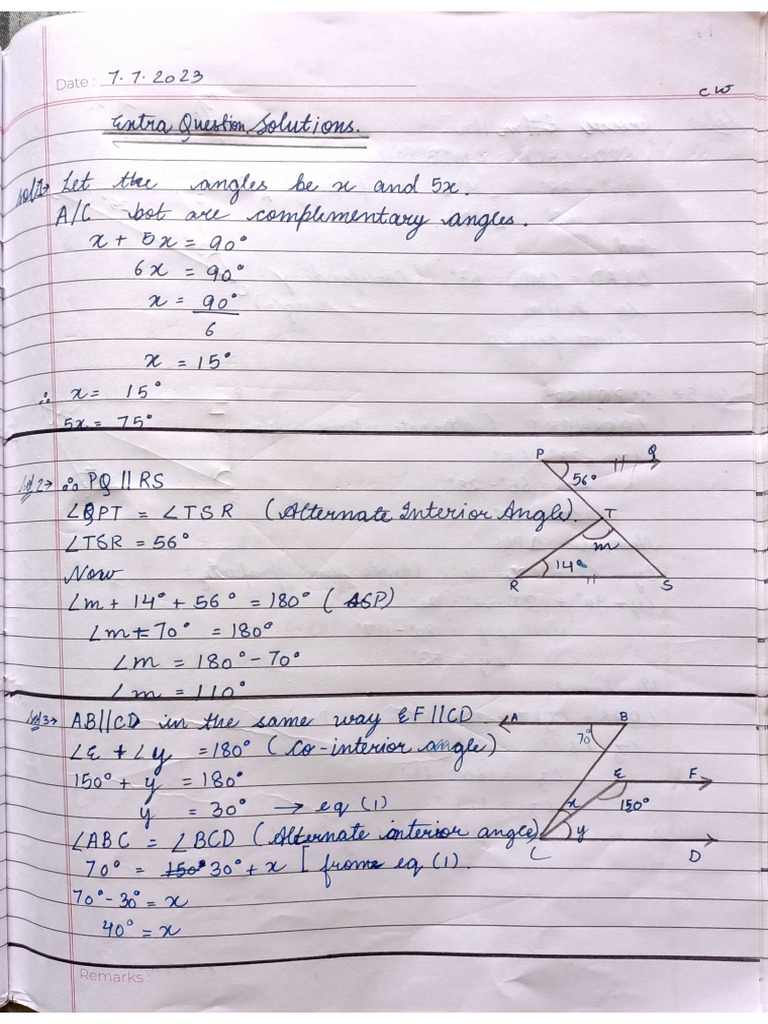 Date : 7.7.2023
CW
Extra Question Solutions.
Sol1→ Let the angles be x and 5x.
A/C bot are complimentary angles.
x + 5x = 90°
6x = 90°
x = 90°
6
x = 15°
∴ x = 15°
5x = 75°
Sol2→ ∴ PQ || RS
∠QPT = ∠TSR (Alternate Interior Angle).
∠TSR = 56°
Now
∠m + 14° + 56° = 180° (ASP)
∠m + 70° = 180°
∠m = 180° - 70°
∠m = 110°
P Q
56°
T
m
14°
R S
Sol3→ AB||CD in the same way EF||CD
∠E + ∠y = 180° (Co-interior angle)
150° + y = 180°
y = 30° → eq (1)
∠ABC = ∠BCD (Alternate interior angle)
70° = 150° 30° + x [from eq (1).
70° - 30° = x
40° = x
A B
70°
E F
x 150°
y
C D
Remarks :